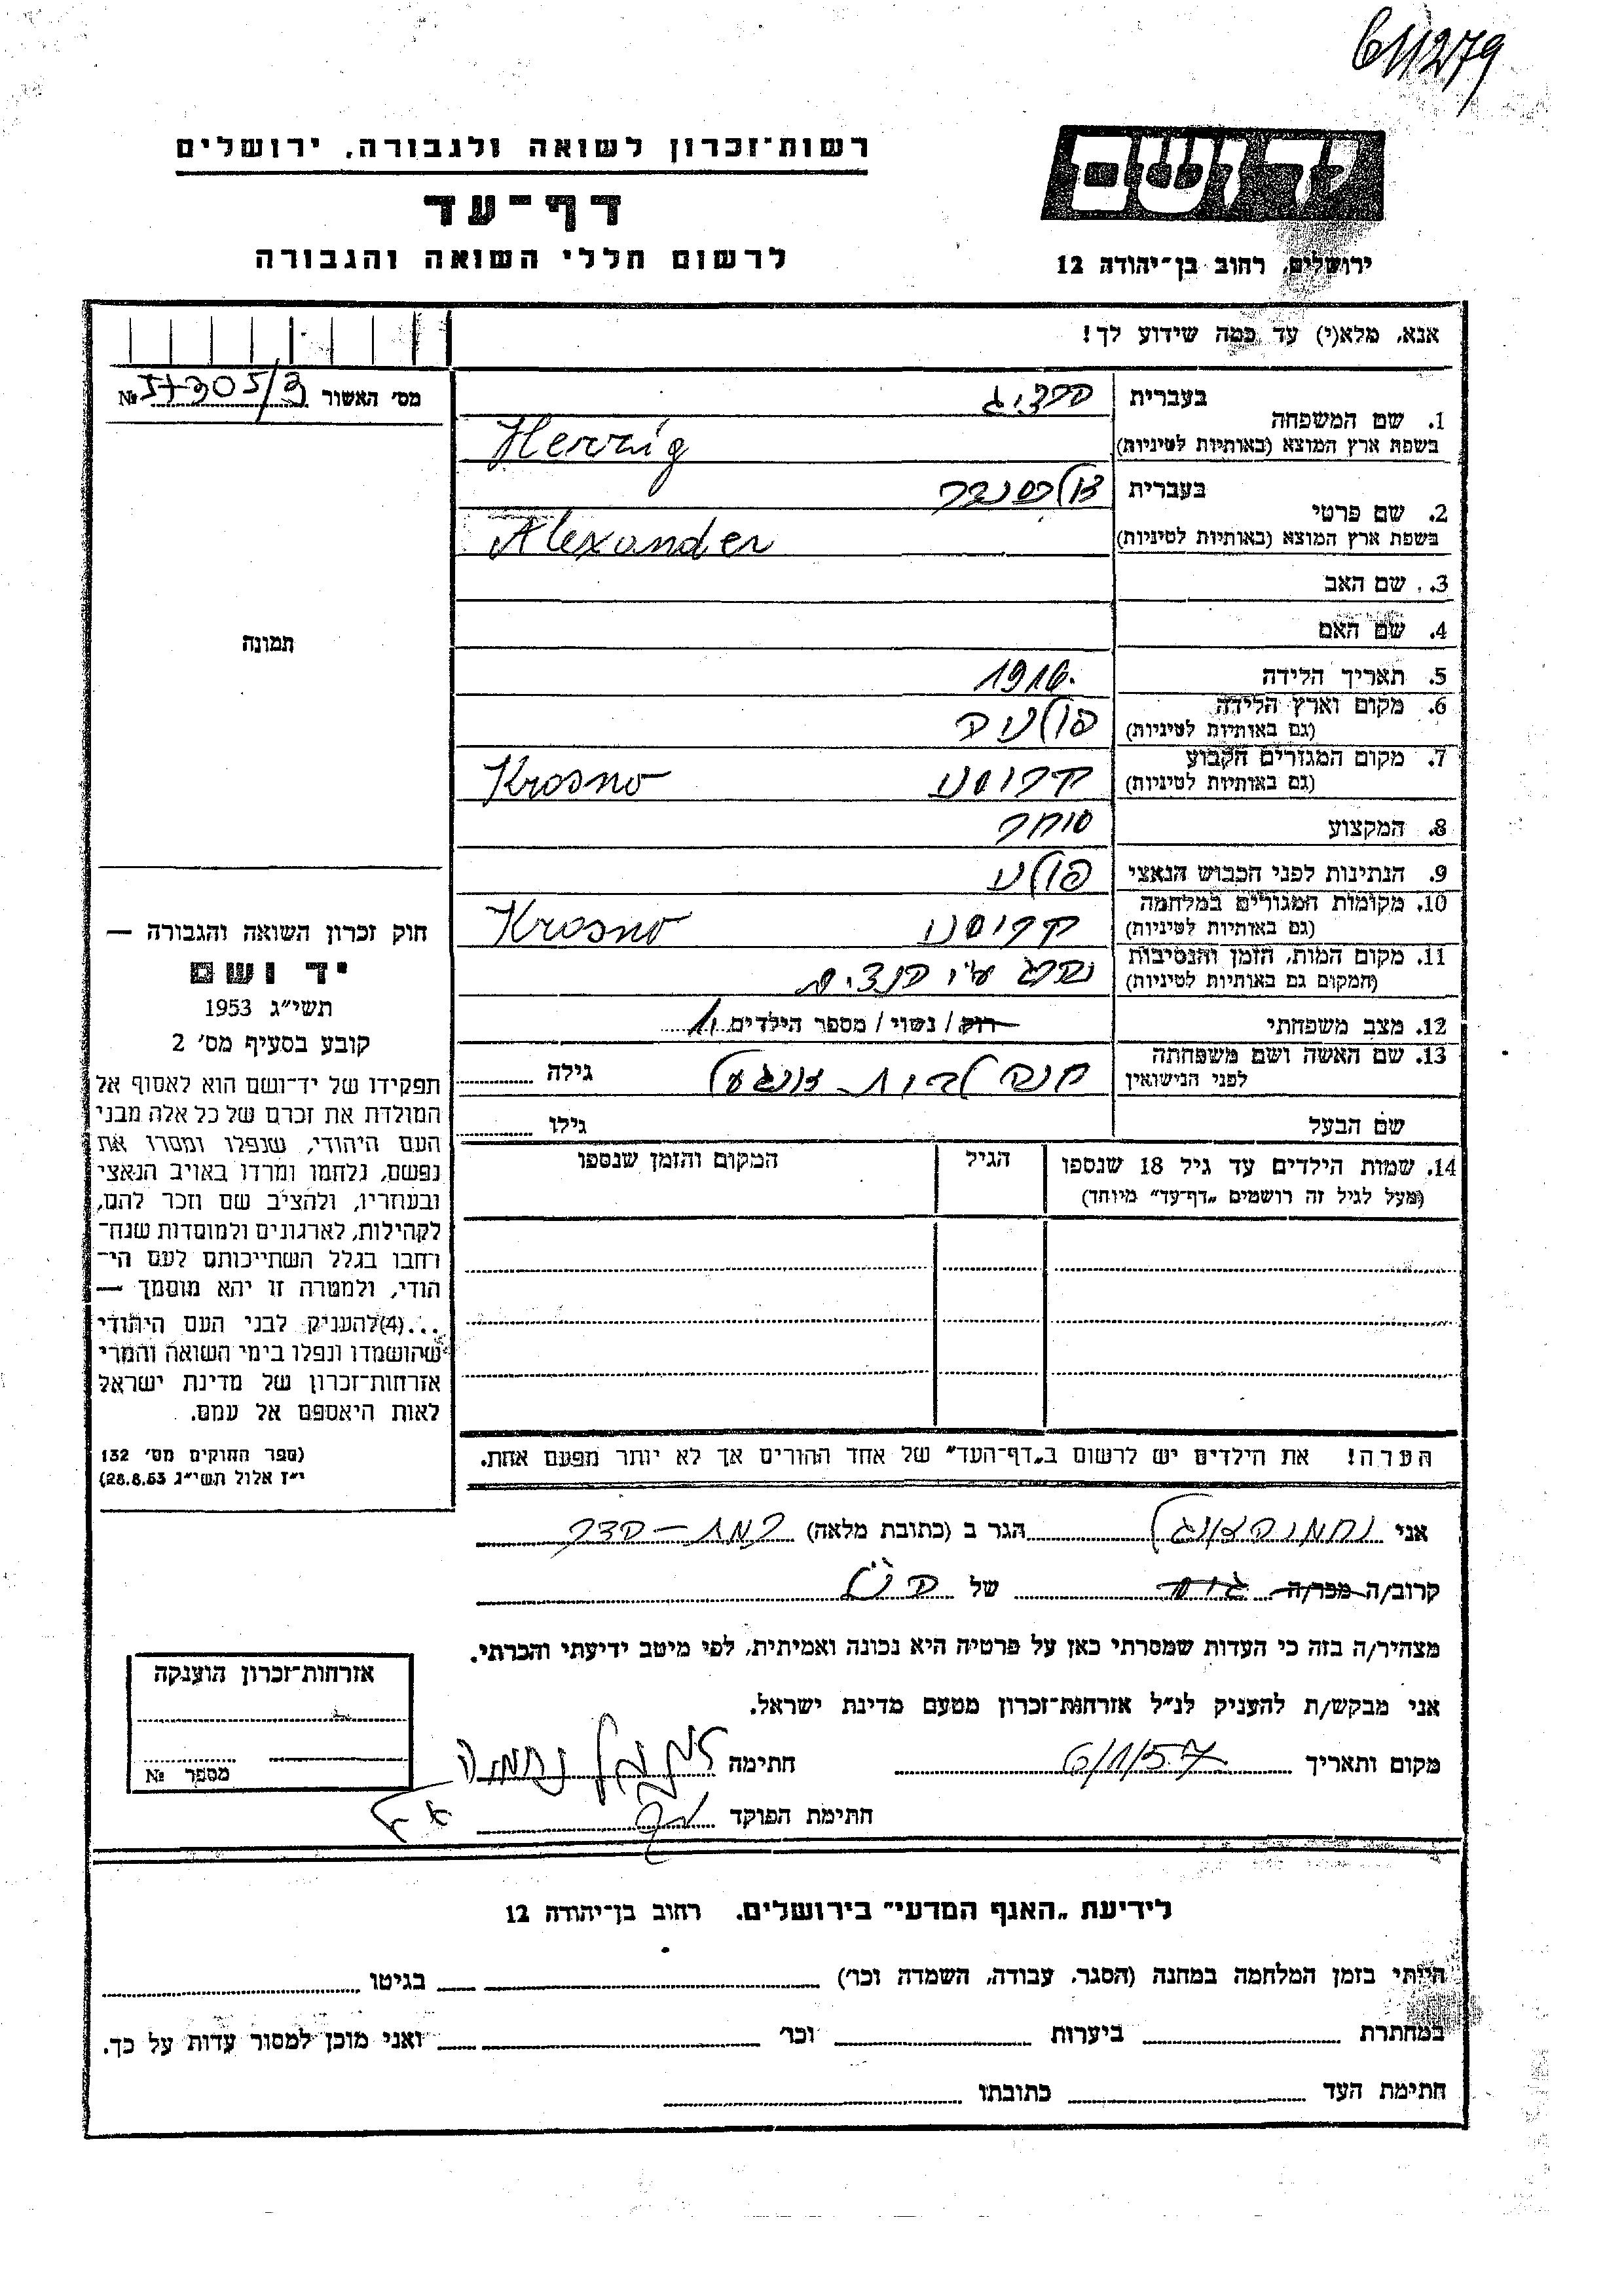 611279
רשות־זכרון לשואה ולגבורה, ירושלים
דף־עד
לרשום חללי השואה והגבורה
ידושם
ירושלים, רחוב בן־יהודה 12
אנא, מלא(י) עד כמה שידוע לך!
מס׳ האשור 57305/3 №
תמונה
חוק זכרון השואה והגבורה —
יד ושם
תשי״ג 1953
קובע בסעיף מס׳ 2
תפקידו של יד־ושם הוא לאסוף אל
המולדת את זכרם של כל אלה מבני
העם היהודי, שנפלו ומסרו את
נפשם, נלחמו ומרדו באויב הנאצי
ובעוזריו, ולהציב שם וזכר להם,
לקהילות, לארגונים ולמוסדות שנח־
רחבו בגלל השתייכותם לעם הי־
הודי, ולמטרה זו יהא מוסמך —
...(4)להעניק לבני העם היהודי
שהושמדו ונפלו בימי השואה והמרי
אזרחות־זכרון של מדינת ישראל
לאות היאספם אל עמם.
(ספר החוקים מס׳ 132
י״ז אלול תשי״ג 28.8.53)
1. שם המשפחה
בעברית הרציג
בשפת ארץ המוצא (באותיות לטיניות) Herzig
2. שם פרטי
בעברית אלכסנדר
בשפת ארץ המוצא (באותיות לטיניות) Alexander
3. שם האב
4. שם האם
5. תאריך הלידה 1916.
6. מקום וארץ הלידה
(גם באותיות לטיניות) פולניה
7. מקום המגורים הקבוע
(גם באותיות לטיניות) קרוסנו Krosno
8. המקצוע סוחר
9. הנתינות לפני הכבוש הנאצי פולני
10. מקומות המגורים במלחמה
(גם באותיות לטיניות) קרוסנו Krosno
11. מקום המות, הזמן והנסיבות
(המקום גם באותיות לטיניות) נהרג ע״י הנצים
12. מצב משפחתי רוק / נשוי / מספר הילדים 1
13. שם האשה ושם משפחתה
לפני הנישואין חנה לבית גילה
שם הבעל גילו
14. שמות הילדים עד גיל 18 שנספו הגיל המקום והזמן שנספו
(מעל לגיל זה רושמים „דף־עד״ מיוחד)
הערה! את הילדים יש לרשום ב„דף־העד״ של אחד ההורים אך לא יותר מפעם אחת.
אני נחמה הגר ב (כתובת מלאה) רמת־הדר
קרוב/ה מכר/ה של
מצהיר/ה בזה כי העדות שמסרתי כאן על פרטיה היא נכונה ואמיתית, לפי מיטב ידיעתי והכרתי.
אני מבקש/ת להעניק לנ״ל אזרחות־זכרון מטעם מדינת ישראל.
מקום ותאריך 6/1/57 חתימה
חתימת הפוקד
אזרחות־זכרון הוענקה
מספר №
לידיעת „האגף המדעי״ בירושלים, רחוב בן־יהודה 12
הייתי בזמן המלחמה במחנה (הסגר, עבודה, השמדה וכו׳) בגיטו
במחתרת ביערות וכו׳ ואני מוכן למסור עדות על כך.
חתימת העד כתובתו